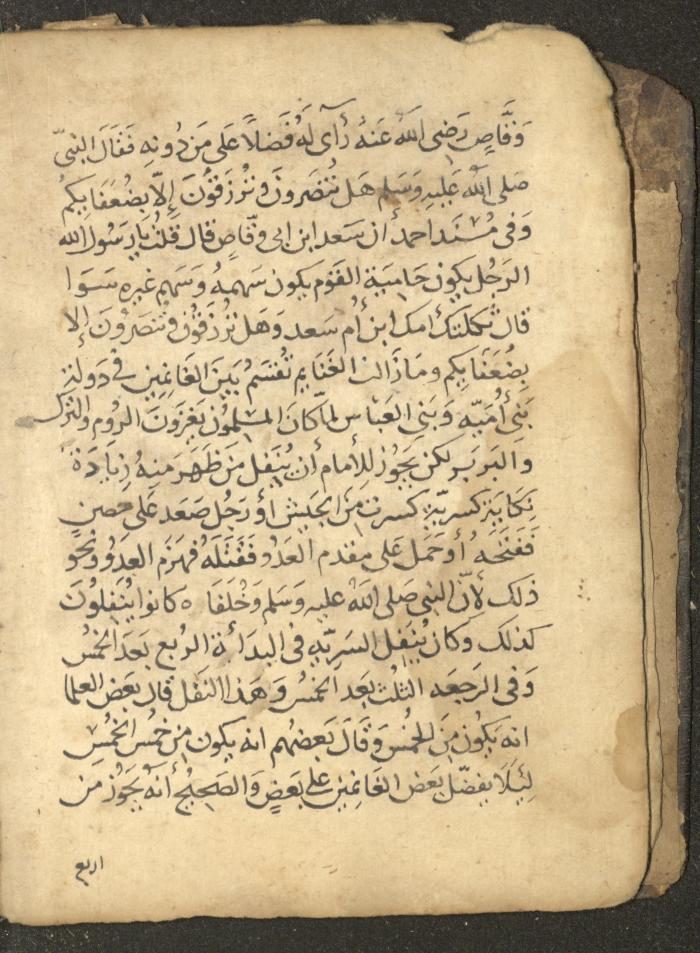 وَقَّاصٍ رَضى الله عَنهُ رَأى لَهُ فَضلاً عَلى مَن دُونِهِ فَقَالَ النبىّ
صَلى الله عَلَيهِ وَسَلم هَل تُنصَرونَ وتُرزَقُونَ إلّا بِضُعَفَايِكُم
وَفى مُسنَد احمدَ أن سَعد ابن ابى وقّاصٍ قال قلتُ يا رسُول الله
الرجُل يكون حَامِيَة القَوم يكون سَهمهُ وسَهم غيرِه سَوَا
قال ثكلتك امك ابن أُم سَعد وَهَل تُرزَقُونَ وتُنصَرُونَ إلا
بِضُعَفَايِكم ومَا زَالت الغَنَايم تُقسَمُ بَينَ الغَانِمِين فى دَولَةِ
بَنِى أُمَيّه وَبَنى العَبّاس لمّا كَانَ المسلمُونَ يَغزُونَ الرُوم والتُرك
والبَربَر لكن يَجُوز للأِمام أن يُنَفل مَن ظَهَرَ مِنهُ زِيَادَة
نِكَايَةٍ كسريّةٍ كسرت مِنَ الجَيش أو رَجُل صَعَد عَلى حصنٍ
فَفَتَحَهُ أو حَمَل على مقدم العَدُو فَقَتَلَهُ فهزَم العَدو ونحو
ذلك لأنّ النبى صَلى الله عليه وَسَلم وَخُلَفَاه كانوا يُنَفِلونَ
كذلكَ وكان يُنَفل السَريّه فى البدأة الرُبع بَعدَ الخمُس
وَفى الرَجعَه الثُلث بَعد الخمُسِ وَهَذا النَفل قال بَعض العلما
انه يَكُون مِنَ الخُمُس وَقَالَ بَعضهُم انه يكون مِن خُمُس الخُمُسِ
لِئَلا يفضّل بَعض الغَانِمِينَ على بَعضٍ وَالصَحِيحُ أنّه يَجُوز من
اربع